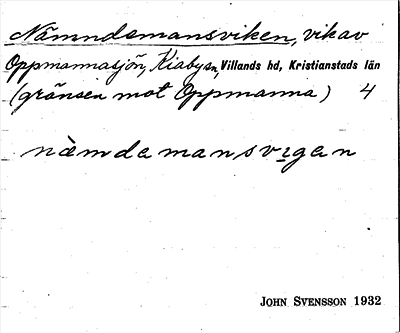 Nämndemansviken, vik av
Oppmannasjön, Kiaby sn, Villands hd, Kristianstads län
(gränsen mot Oppmanna) 4
nämdemansvigen
JOHN SVENSSON 1932